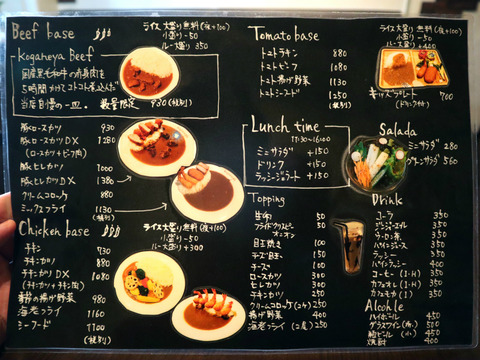 Beef base
ライス大盛り無料(夜+100)
小盛り-50
ルー大盛り 350
Koganeya Beef
国産黒毛和牛の赤身肉を
5時間かけてコトコト煮込んだ
当店自慢の一皿。 数量限定 930(税別)
豚ロースカツ 930
豚ロースカツDX 1280
(ロースカツ+ビーフ肉)
豚ヒレカツ 1000
豚ヒレカツDX 1380
クリームコロッケ 880
ミックスフライ 1130
(税別)
Chicken base
ライス大盛り無料(夜+100)
小盛り-50
ルー大盛り+300
チキン 730
チキンカツ 880
チキンカツDX 1080
(チキンカツ+チキン肉)
揚げ野菜 980
海老フライ 1160
シーフード 1100
(税別)
Tomato base
ライス大盛り無料(夜+100)
小盛り-50
ルー大盛り+400
トマトチキン 880
トマトビーフ 1080
トマト揚げ野菜 1130
トマトシーフード 1250
(税別)
キッズプレート 700
(ドリンク付)
Lunch time
11:30~16:00
ミニサラダ +150
ドリンク +150
ラッシージェラート +150
Salada
ミニサラダ 280
グリーンサラダ 560
Topping
生卵 50
フライドクリスピーオニオン 50
目玉焼き 100
チーズ 100
ロースカツ 300
ヒレカツ 300
チキンカツ 250
クリームコロッケ(2ケ) 250
揚げ野菜 400
海老フライ(2尾) 500
Drink
コーラ 350
ジンジャーエール 350
ウーロン茶 350
パインジュース 350
ラッシー 350
パインラッシー 400
コーヒー(I・H) 350
カフェオレ(I・H) 350
カフェモカ(I) 350
Alcohle
ハイボール 450
グラスワイン(赤) 500
瓶ビール(小) 450
焼酎 400